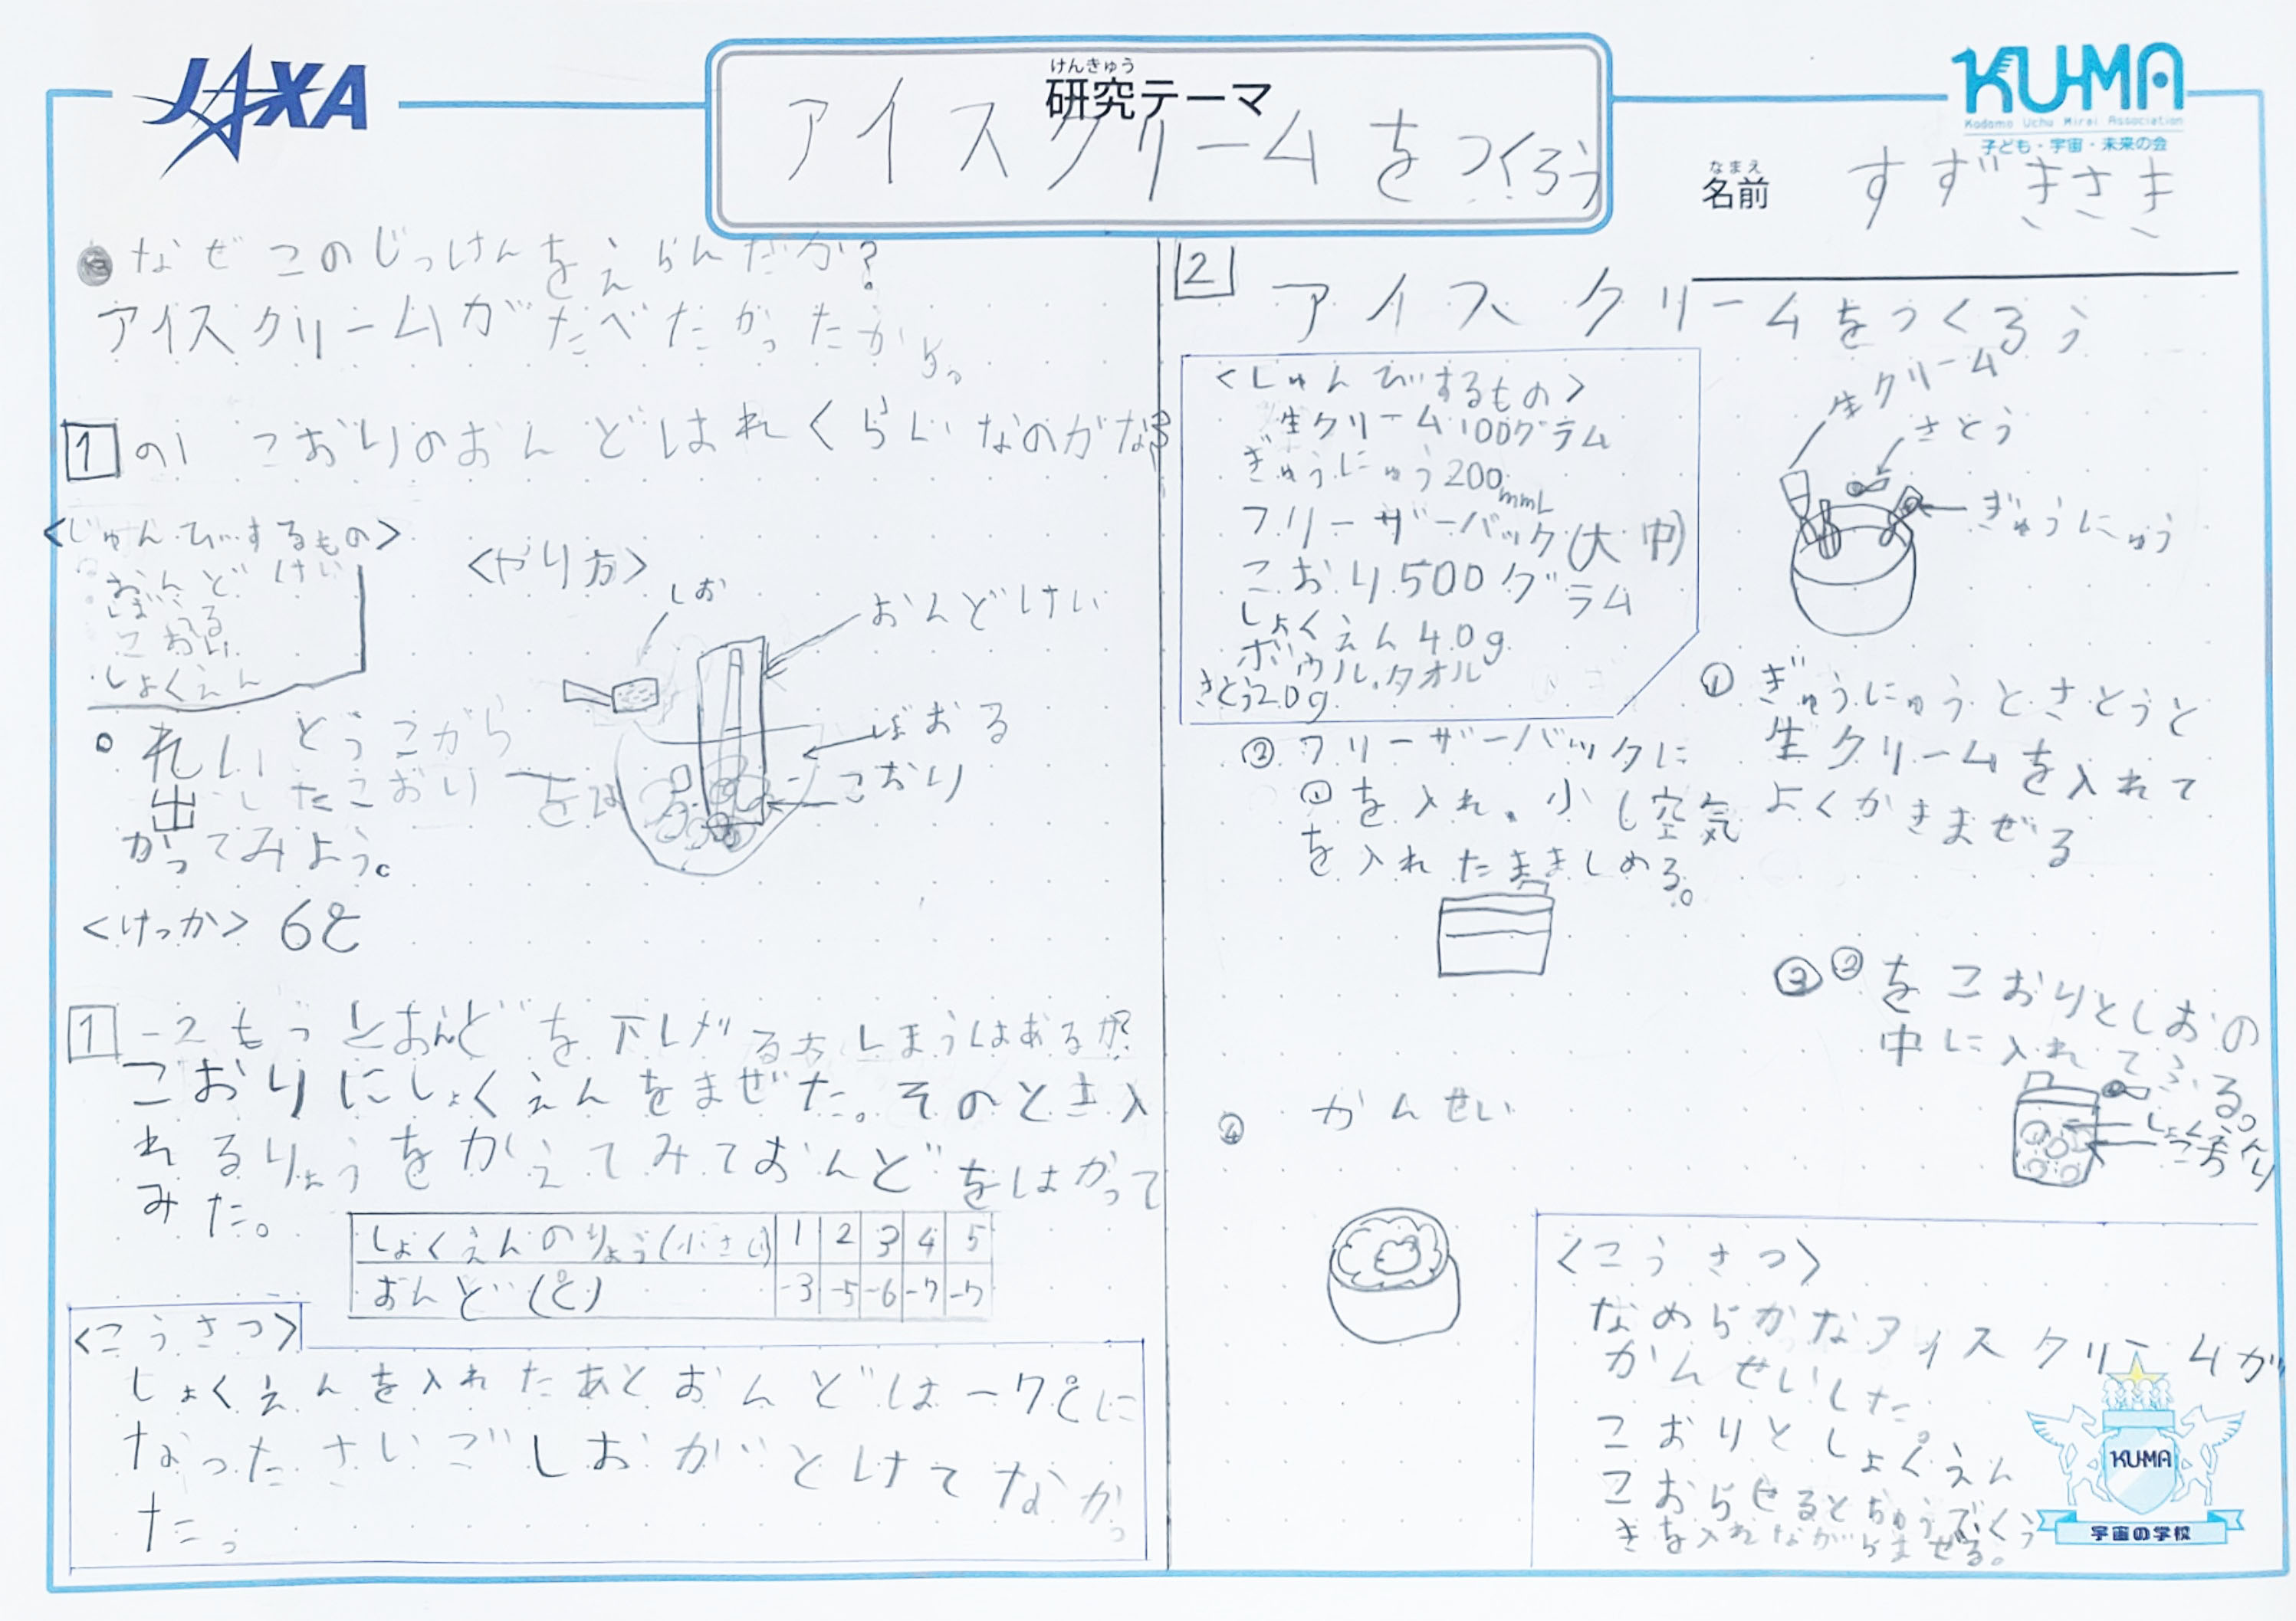 JAXA
けんきゅう
研究テーマ
アイスクリームをつくろう
KU-MA
Kodomo Uchu Mirai Association
子ども・宇宙・未来の会
なまえ
名前
すずきさき
なぜこのじっけんをえらんだか?
アイスクリームがたべたかったから。
1 の1 こおりのおんどはれくらいなのかな?
<じゅんびするもの>
おんどけい
ぼおる
こおり
しょくえん
<やり方>
しお
おんどけい
ぼおる
こおり
れいとうこから
出したこおりをは
かってみよう。
<けっか> 6℃
1 -2 もっとおんどを下げる
こおりにしょくえんをまぜた。そのとき入
れるりょうをかえてみておんどをはかって
みた。
しょくえんのりょう(小さじ) 1 2 3 4 5
おんど(℃) -3 -5 -6 -7 -7
<こうさつ>
しょくえんを入れたあとおんどは-7℃に
なったさいごしおがとけてなかっ
た。
2 アイスクリームをつくろう
<じゅんびするもの>
生クリーム100グラム
ぎゅうにゅう200mmL
フリーザーバック(大中)
こおり500グラム
しょくえん40g
ボウル.タオル
さとう20g
生クリーム
さとう
ぎゅうにゅう
① ぎゅうにゅうとさとうと
生クリームを入れて
よくかきまぜる
② フリーザーバックに
①を入れ、小し空気
を入れたまましめる。
③ ②をこおりとしおの
中に入れてふる。
しょくえん
こおり
④ かんせい
<こうさつ>
なめらかなアイスクリームが
かんせいした。
こおりとしょくえん
こおらせるとちゅうでくう
きを入れながらまぜる。
KU-MA
宇宙の学校